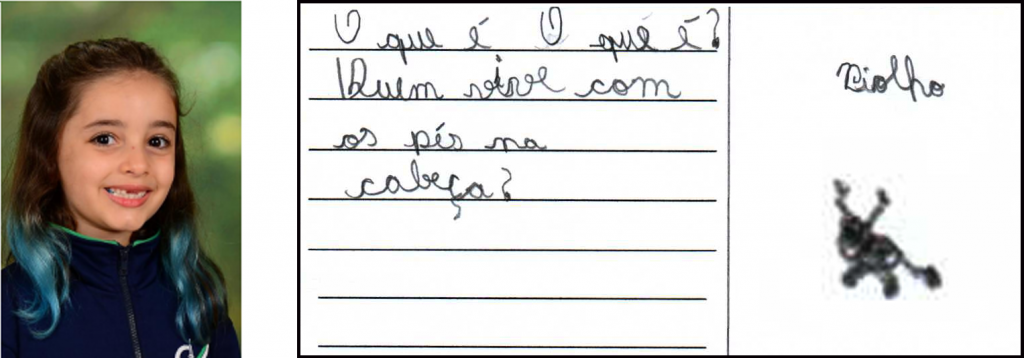 O que é O que é?
Quem vive com
os pés na
cabeça?
Piolho